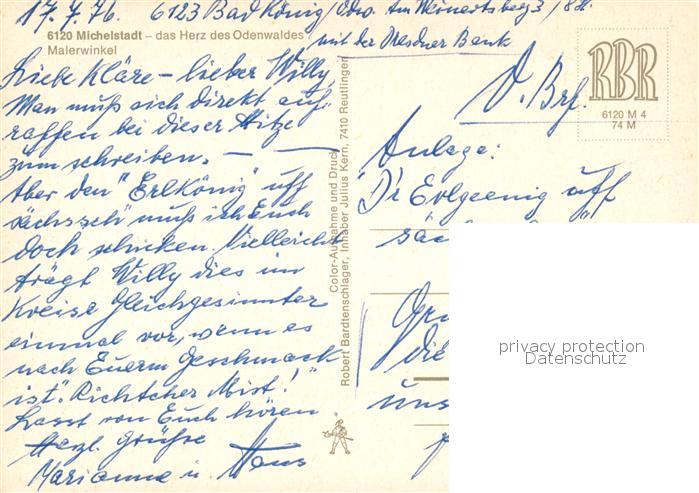 17.7.76. 6123 Bad König/Odw. Am Weinertsberg 3/8H.
mit der Dresdner Bank
6120 Michelstadt – das Herz des Odenwaldes
Malerwinkel
Liebe Kläre – lieber Willy,
Man muß sich direkt auf-
raffen bei dieser Hitze
zum schreiben. —
Aber den "Erlkönig" uff
sächs'sch muß ich Euch
doch schicken. Vielleicht
trägt Willy dies im
Kreise Gleichgesinnter
einmal vor, wenn es
nach Euerm Geschmack
ist. "Richtcher Mist!"
Lasst von Euch hören
Herzl. Grüße
Marianne u. Hans
Color-Aufnahme und Druck
Robert Bardtenschlager, Inhaber Julius Kern, 7410 Reutlingen
RBR
6120 M 4
74 M
D. Brf.
Anlage:
"D'r Erlgeenig uff
säc
die
uns
privacy protection
Datenschutz